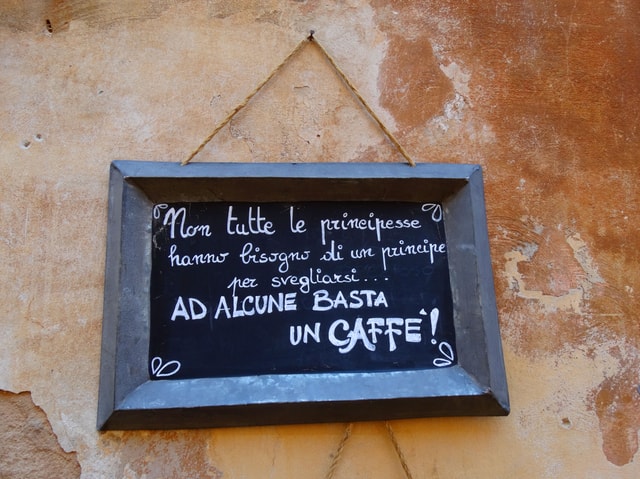 Non tutte le principesse
hanno bisogno di un principe
per svegliarsi...
AD ALCUNE BASTA
UN CAFFÈ!